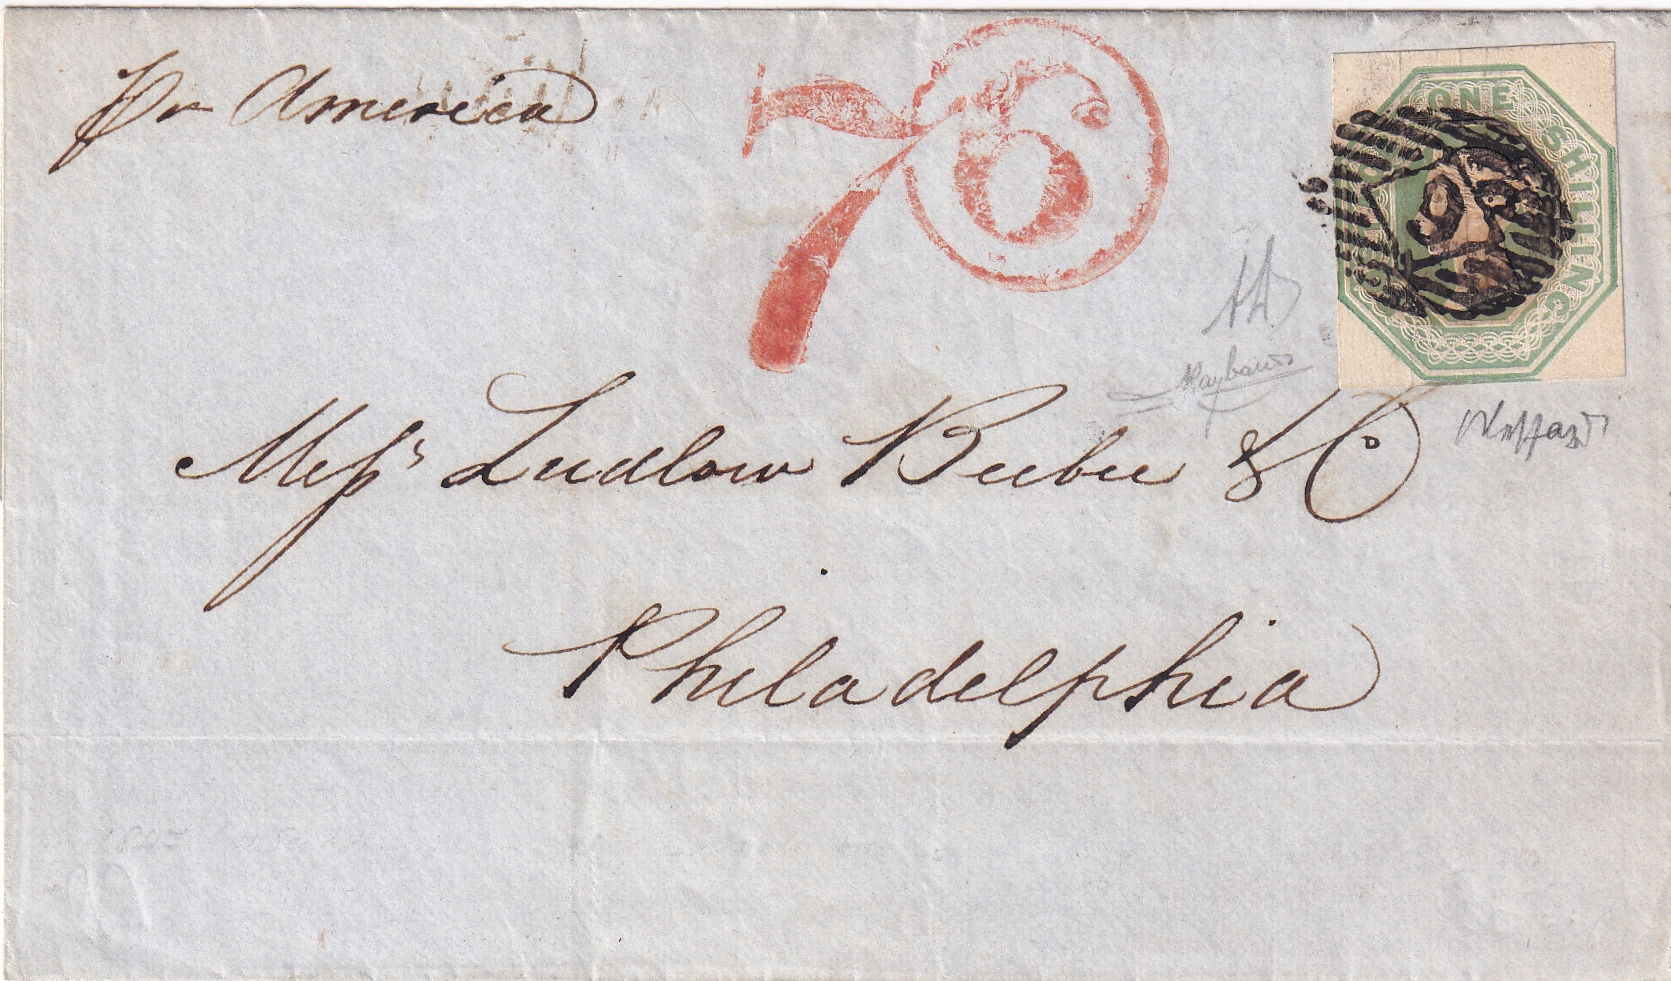 Pr America
7
6
ONE SHILLING
Messrs Ludlow Beebee & Co
Philadelphia